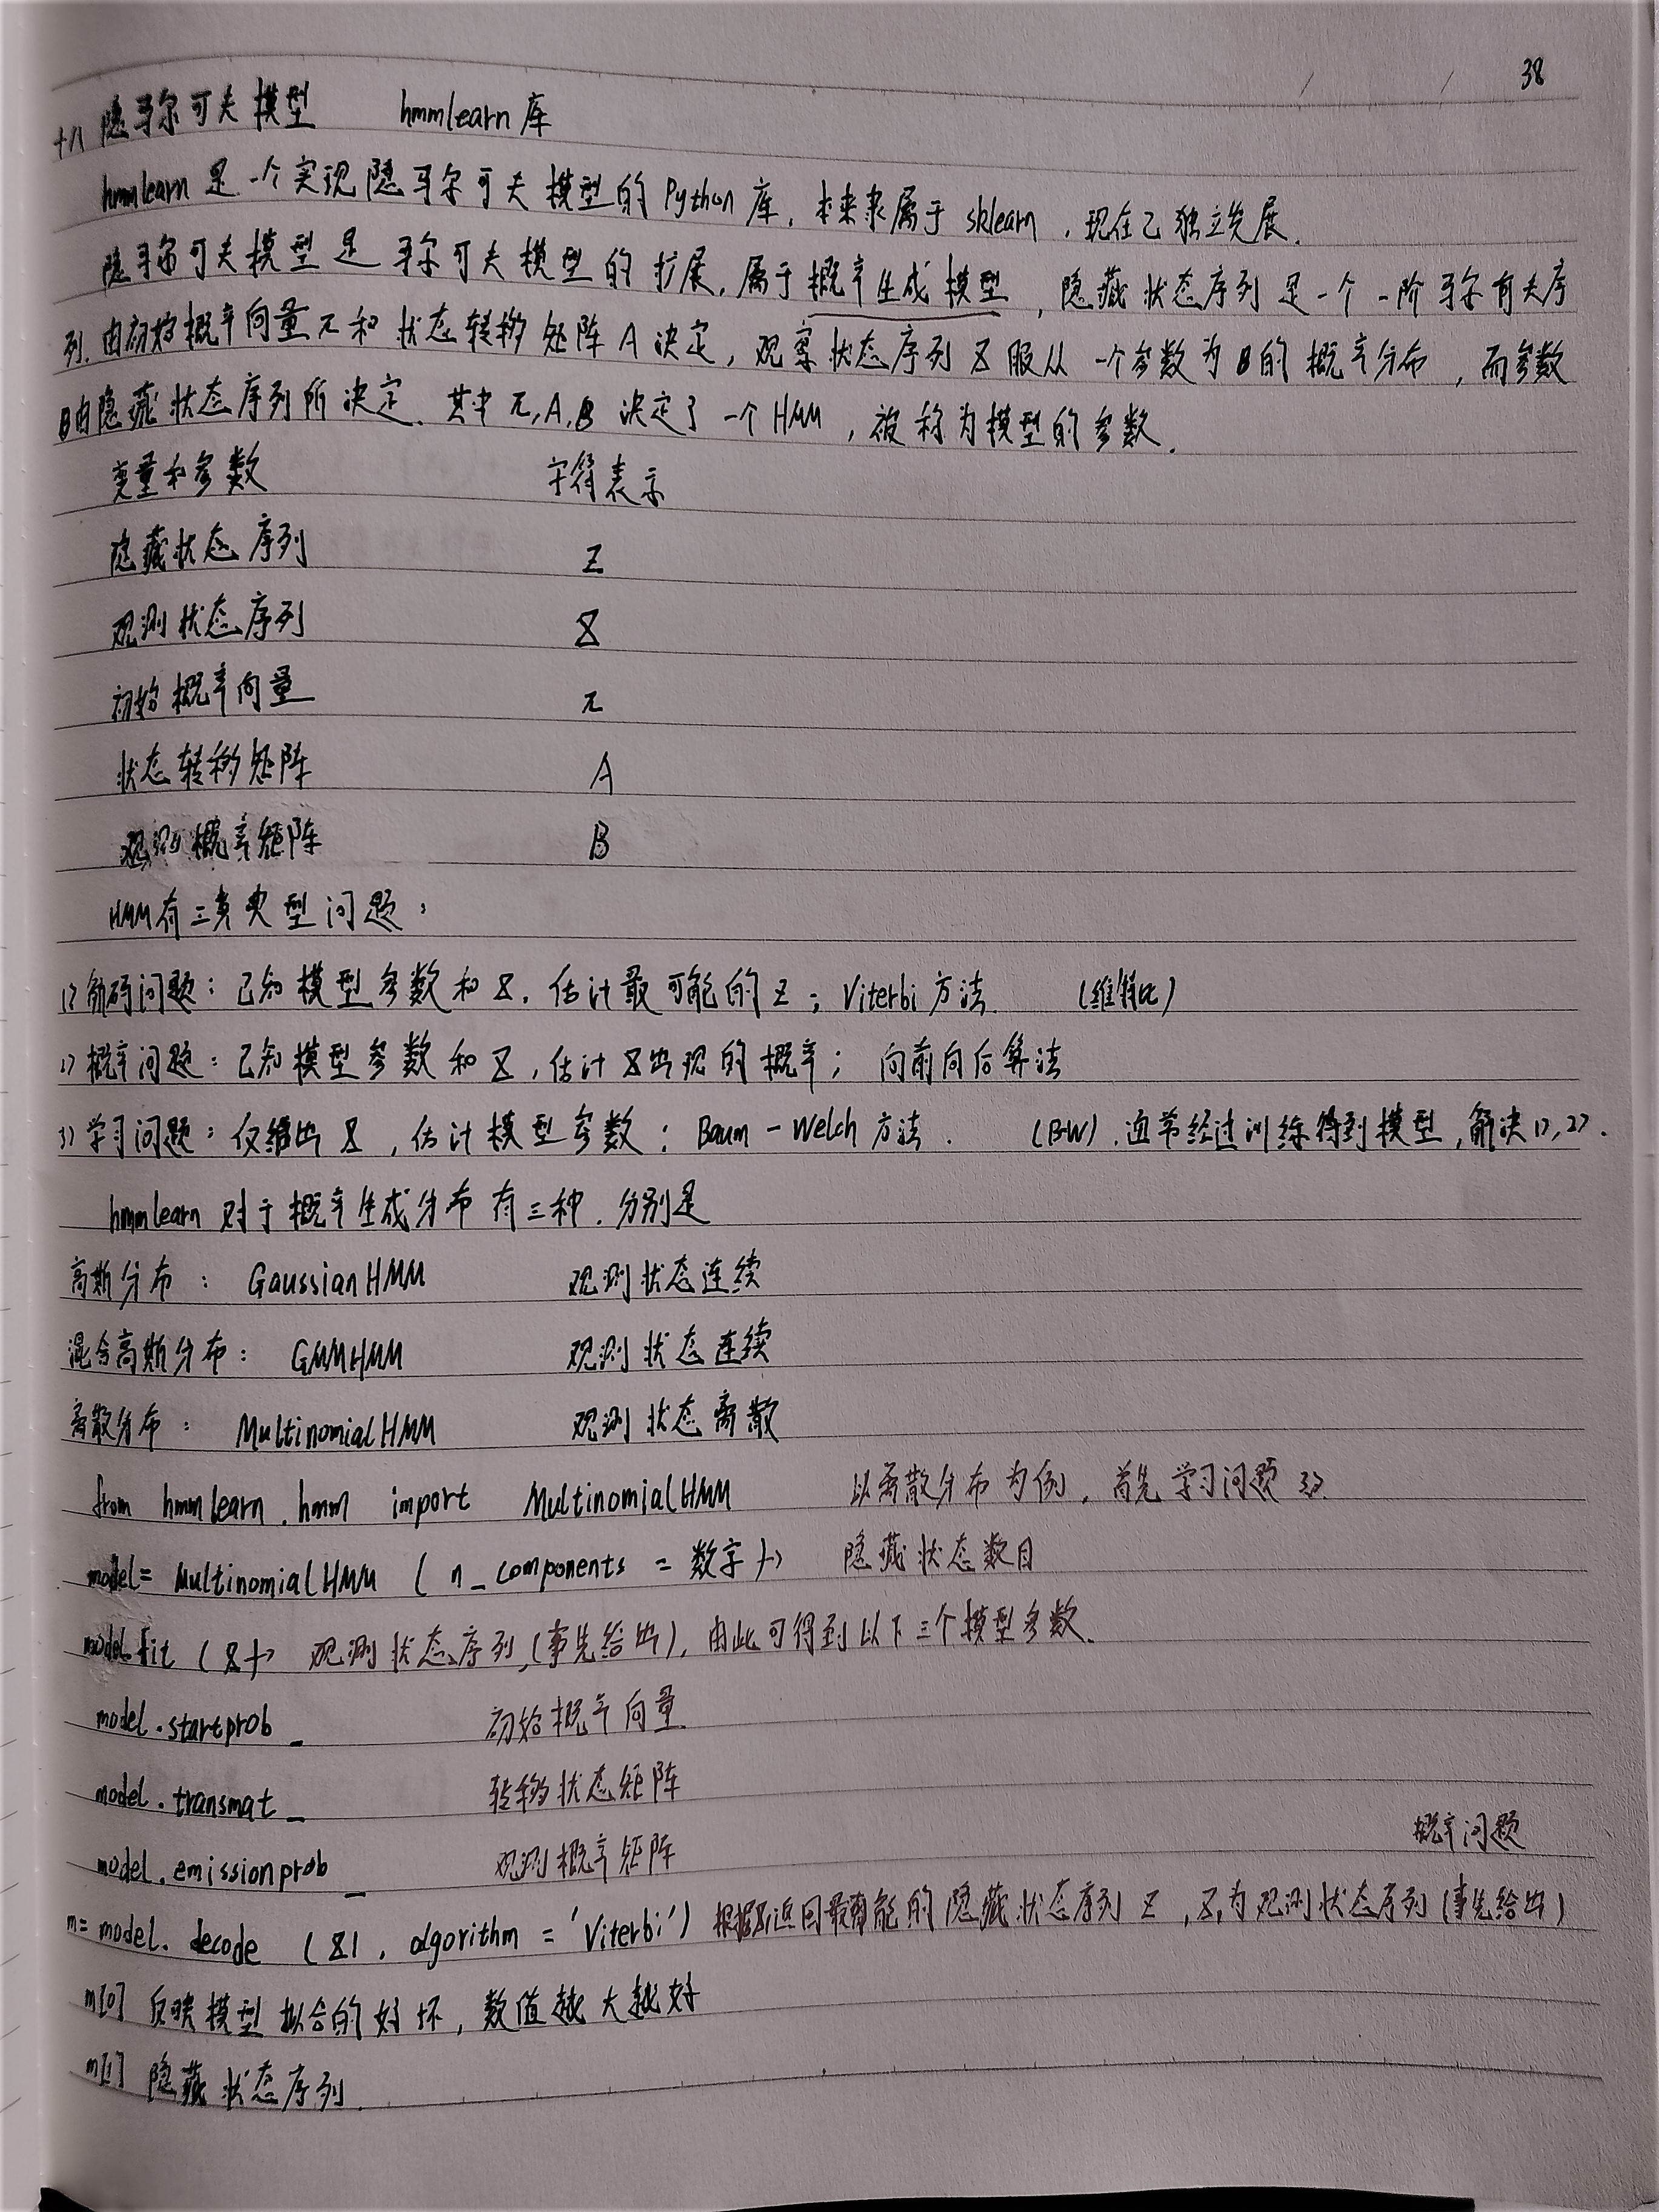 38
十八 隐马尔可夫模型 hmmlearn库
hmmlearn 是一个实现隐马尔可夫模型的Python库，本来隶属于sklearn，现在已独立发展.
隐马尔可夫模型是马尔可夫模型的扩展，属于概率生成模型，隐藏状态序列是一个一阶马尔可夫序
列.由初始概率向量π和状态转移矩阵A决定，观察状态序列X服从一个参数为B的概率分布，而参数
B由隐藏状态序列所决定.其中π,A,B决定了一个HMM，被称为模型的参数.
变量和参数 字符表示
隐藏状态序列 Z
观测状态序列 X
初始概率向量 π
状态转移矩阵 A
观测概率矩阵 B
HMM有三类典型问题：
1) 解码问题：已知模型参数和X，估计最可能的Z；Viterbi方法. (维特比)
2) 概率问题：已知模型参数和X，估计X出现的概率；向前向后算法
3) 学习问题：仅给出X，估计模型参数；Baum-Welch方法. (BW).通常经过训练得到模型，解决1),2).
hmmlearn对于概率生成分布有三种.分别是
高斯分布： GaussianHMM 观测状态连续
混合高斯分布： GMMHMM 观测状态连续
离散分布： MultinomialHMM 观测状态离散
from hmmlearn.hmm import MultinomialHMM 以离散分布为例，首先学习问题3).
model= MultinomialHMM ( n_components = 数字 ) 隐藏状态数目
model.fit (X) 观测状态序列,(事先给出)，由此可得到以下三个模型参数.
model.startprob_ 初始概率向量.
model.transmat_ 转移状态矩阵
model.emissionprob_ 观测概率矩阵
概率问题
m= model.decode (X1, algorithm = 'Viterbi') 根据X1返回最可能的隐藏状态序列Z，X1为观测状态序列(事先给出)
m[0] 反映模型拟合的好坏，数值越大越好
m[1] 隐藏状态序列.